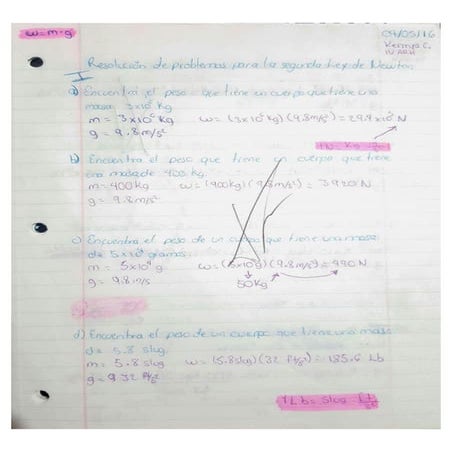 w=m·g
09/05/16
Kennya C.
Resolución de problemas para la segunda Ley de Newton
I
a) Encontrar el peso que tiene un cuerpo que tiene una
masa 3x10 kg
m = 3x10 kg w= (3x10 kg)(9.8m/s²) = N
g = 9.8m/s²
b) Encuentra el peso que tiene un cuerpo que tiene
una masa de 400 kg.
m= 400kg w= (400kg)(9.8m/s²) = 3920N
g= 9.8m/s²
c) Encuentra el peso de un cuerpo que tiene una masa
de 5x10 gramos.
m= 5x10 g w= (5x10 g)(9.8m/s²) = 490N
50kg
g= 9.8m/s
d) Encuentra el peso de un cuerpo que tiene una masa
de 5.8 slug.
m= 5.8 slug w= (5.8slug)(32 ft/s²) = 185.6 Lb
g= 9.32 ft/s²
1Lb= Slug